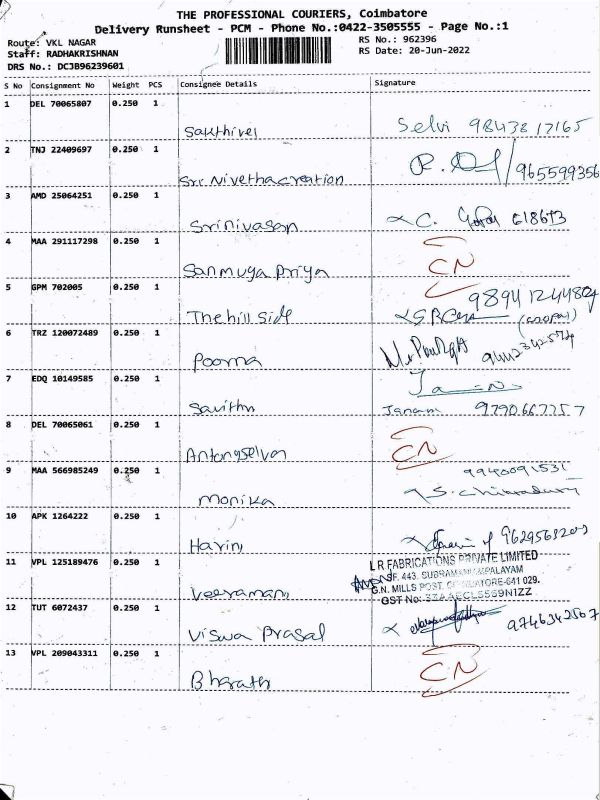 THE PROFESSIONAL COURIERS, Coimbatore
Delivery Runsheet - PCM - Phone No.:0422-3505555 - Page No.:1
Route: VKL NAGAR
RS No.: 962396
Staff: RADHAKRISHNAN
RS Date: 20-Jun-2022
DRS No.: DCJB96239601
S No Consignment No Weight PCS Consignee Details Signature
1 DEL 70065807 0.250 1
Sakthivel Selvi 9843817165
2 TNJ 22409697 0.250 1
Sri Nivetha creation 965599356
3 AMD 25064251 0.250 1
Srinivasan C. 618673
4 MAA 291117298 0.250 1
Sanmuga Priya CN
5 GPM 702005 0.250 1
9894124480
The hill side (GOPAL)
6 TRZ 120072489 0.250 1
Poorna
7 EDQ 10149585 0.250 1
Savitha Janani 9790667757
8 DEL 70065061 0.250 1
Antonyselvan CN
9 MAA 566985249 0.250 1
9940091531
Monika
10 APK 1264222 0.250 1
Harini
L R FABRICATIONS PRIVATE LIMITED
11 VPL 125189476 0.250 1
S.F. 443, SUBRAMANIAMPALAYAM
G.N. MILLS POST, COIMBATORE-641 029.
Veeramani GST No: 33AAECL5569N1ZZ
12 TUT 6072437 0.250 1
Viswa Prasal 9746342567
13 VPL 209043311 0.250 1
Bharath CN